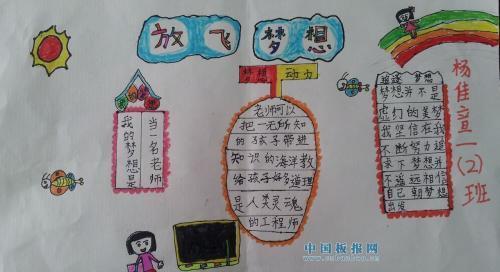 放飞梦想
梦想 动力
我的梦想是
当一名老师
老师可以
把一无所知
的孩子带进
知识的海洋教
给孩子好多道理
是人类灵魂
的工程师
追逐 梦想
梦想并不是
虚幻的美梦
我坚信在我
不断努力追
求下梦想并
不遥远相信
自己朝梦想
出发
杨佳宣一(2)班
中国板报网